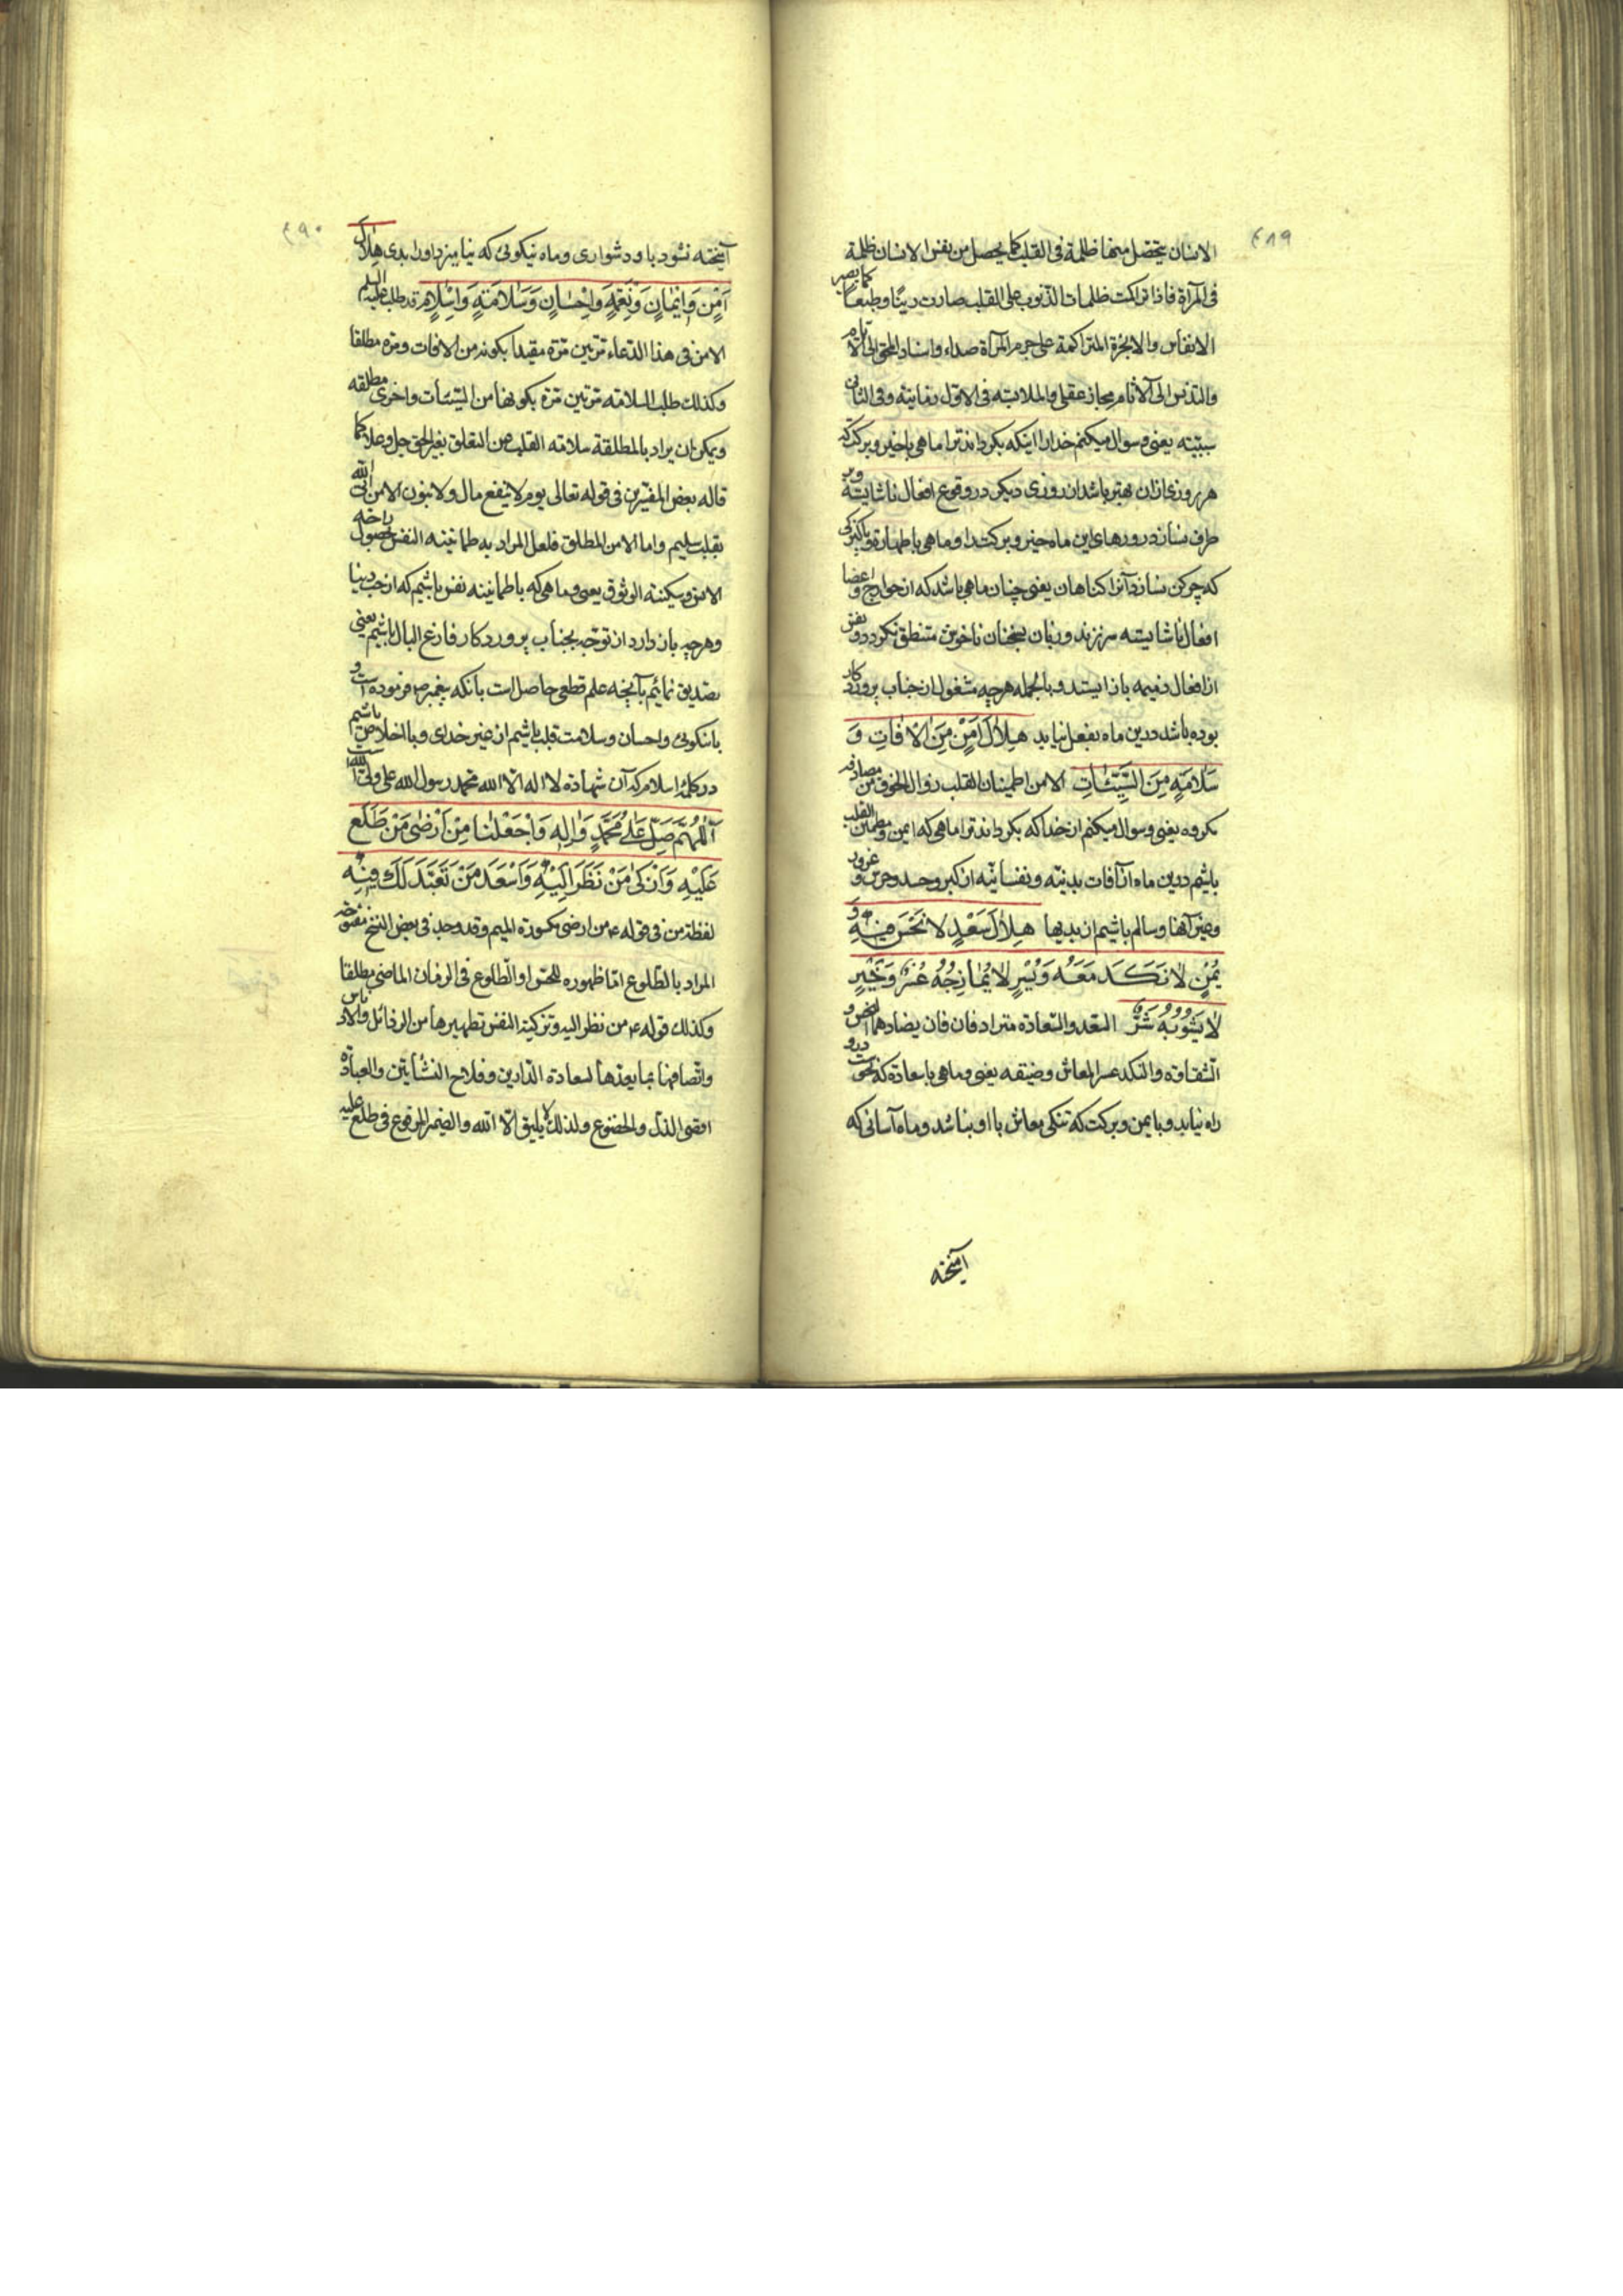 ٤٨٩
الانسان يتحصل منها ظلمة فى القلب كما يحصل من نفس الانسان ظلمة
فى المرآة فاذا تراكمت ظلمات الذنوب على القلب صارت رينًا وطبعًا كما يصير
الانفاس والابخرة المتراكمة على جرم المرآة صداء واسناد المحق الى الايام
والتدنس الى الآثام مجاز عقلى والملابسة فى الاول زمانية وفى الثانى
سببيّه يعنى وسوال ميكنم خدا را اينكه بكرداند ترا ماهى با خير وبركت كه
هر روزى ازان بهتر باشد از روزى ديكر در وقوع افعال ناشايسته وبر
طرف نسازد روزهاى اين ماه خير وبركت را وماهى با طهارة وپاكيزكى
كه چركن نسازد آنرا كناهان يعنى چنان ماهى باشد كه از جوارح واعضا
افعال ناشايسته سر نزند وزبان بسخنان ناخوش متنطق نكردد ونفس
از افعال ذميمه باز ايستد وبالجمله هرچه مشغول از جناب پروردكار
بوده باشد درين ماه بفعل نيايد هِلالَ اَمْنٍ مِنَ الْاٰفاتِ وَ
سَلامَةٍ مِنَ السَّيِّئاتِ الامن اطمينان القلب وزوال الخوف من مصادفه
مكروه يعنى وسوال ميكنم از خدا كه بكرداند ترا ماهى كه ايمن ومطمئن القلب
باشيم درين ماه از آفات بدنيّه ونفسانيّه از كبر وحسد وحرص وغرور
وغير آنها وسالم باشيم از بديها هِلالَ سَعْدٍ لا نَحْسَ فيهِ وَ
يُمْنٍ لا نَكَدَ مَعَهُ وَيُسْرٍ لا يُمازِجُهُ عُسْرٌ وَخَيْرٍ
لا يَشُوبُهُ شَرٌّ السعد والسعادة مترادفان فان يضادهما النحس و
الشقاقة والنكد عسر المعاش وضيقه يعنى وماهى با سعادة كه نحوست درو
راه نيابد وبا يمن وبركت كه تنكى معاش با او نباشد وماه آسانى كه
آميخته
٤٩٠
آميخته نشود با و دشوارى وماه نيكوئى كه نياميزد او را بدى هِلالَ
اَمْنٍ وَايمانٍ وَنِعْمَةٍ وَاِحْسانٍ وَسَلامَةٍ وَاِسْلامٍ قد طلب عليه السلم
الامن فى هذا الدعاء مرتين مرة مقيدا بكونه من الافات ومرة مطلقا
وكذلك طلب السلامه مرتين مرة بكونها من السيئات واخرى مطلقه
ويمكن ان يراد بالمطلقة سلامه القلب من التعلق بغير الحق جل وعلا كما
قاله بعض المفسرين فى قوله تعالى يوم لا ينفع مال ولا بنون الا من اتى الله
بقلب سليم واما الامن المطلق فلعل المراد به طمانينه النفس بحصول راحه
الانس وسكينة الوثوق يعنى وماهى كه با طمانينه نفس باشيم كه از حب دنيا
وهرچه باز دارد از توجه بجناب پروردكار فارغ البال باشيم يعنى
تصديق نمائيم بآنچه علم قطعى حاصل است بآنكه پيغمبر ص فرموده است و
با نيكوئى واحسان وسلامت قلب باشيم از غير خداى وبا اخلاص باشيم
در كلمه اسلام كه آن شهادة لا اله الا الله محمد رسول الله على ولى الله است
اَللّٰهُمَّ صَلِّ عَلى مُحَمَّدٍ وَاٰلِهِ وَاجْعَلْنا مِنْ اَرْضى مَنْ طَلَعَ
عَلَيْهِ وَاَزْكى مَنْ نَظَرَ اِلَيْهِ وَاَسْعَدَ مَنْ تَعَبَّدَ لَكَ فيهِ
لفظة من فى قوله ع من ارضى مكسورة الميم وقد وجد فى بعض النسخ مفتوحه
المراد بالطلوع اما ظهوره للحس او الطلوع فى الزمان الماضى مطلقا
وكذلك قوله ع من نظر اليه وتزكية النفس تطهيرها من الرذائل والادناس
واتصافها بما يعدها لسعادة الدارين وفلاح النشأتين والعبادة
اقصى الذل والخضوع ولذلك لا يليق الا الله والضمير المرفوع فى طلع عليه